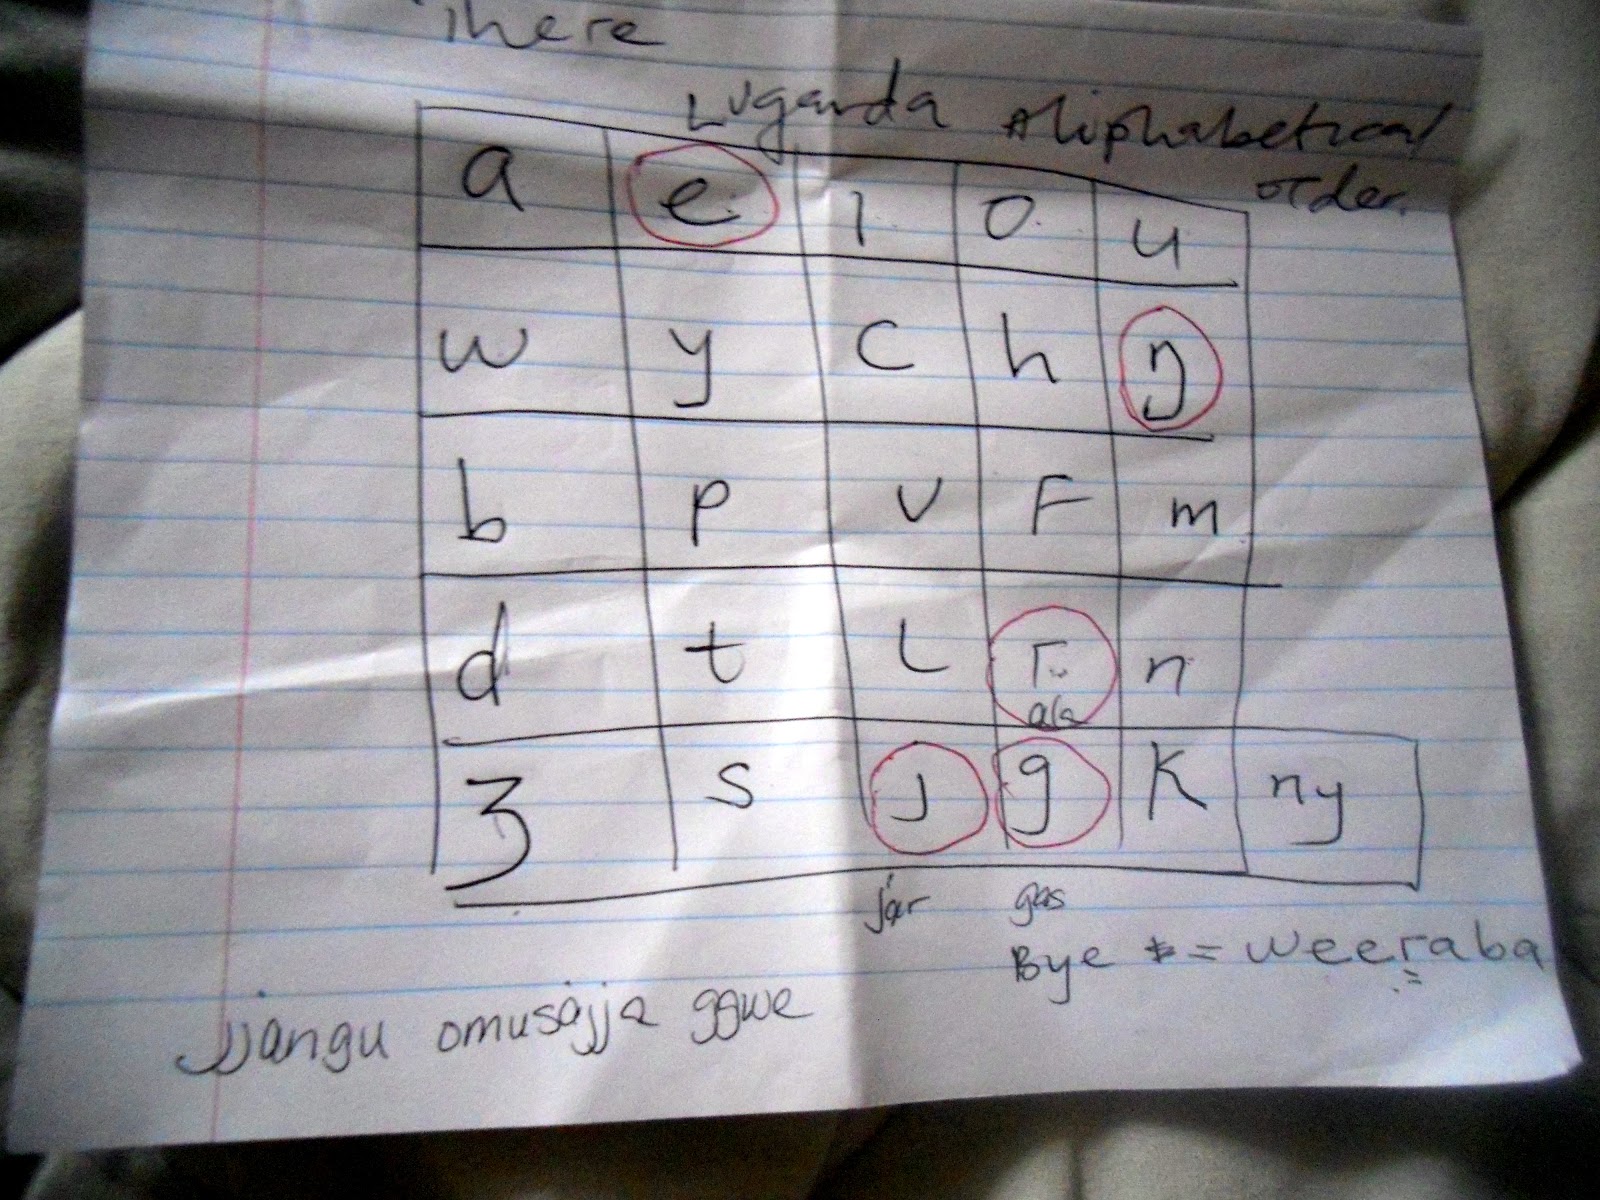 There
Luganda Aliphabetical
order.
a e i o u
w y c h ŋ
b p v F m
d t L r n
als
Z s j g K ny
jar gas
Bye = weeraba
jjangu omusajja ggwe